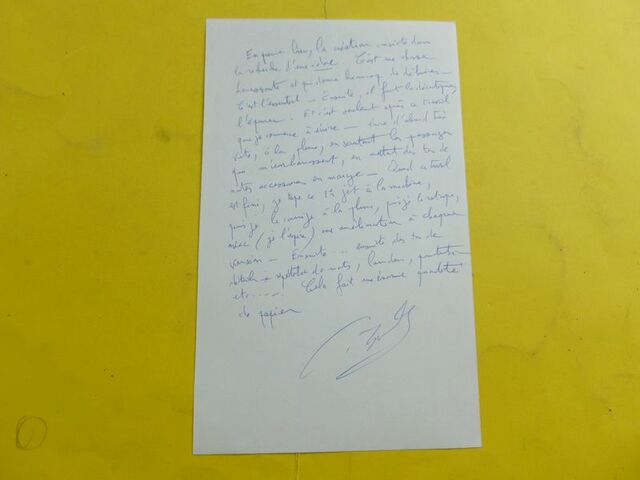 En premier lieu, la création consiste dans
la recherche d'une idée. C'est une chose
et qui donne beaucoup de
C'est l'essentiel - Ensuite, il faut la décortiquer,
l'épurer. Et c'est seulement après ce travail
que je commence à écrire - écrire d'abord très
vite, à la plume, en sautant les passages
qui m'embarrassent, en mettant des tas de
notes accessoires en marge - Quand ce travail
est fini, je tape ce 1er jet à la machine,
puis je le corrige à la plume, puis je le retape,
avec (je l'espère) une amélioration à chaque
version - Ensuite - ensuite des tas de
détails - répétition de mots, lourdeurs, ponctuation
etc..... Cela fait une énorme quantité
de papier